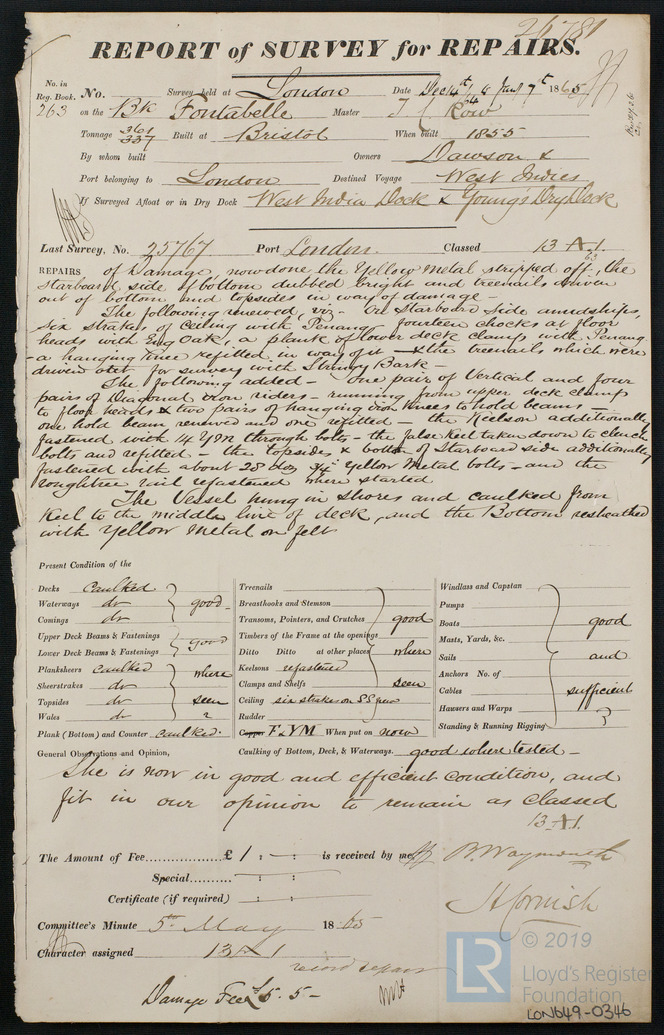 26781
REPORT of SURVEY for REPAIRS.
No. in Reg. Book. No. Survey held at London Date Decr 14th, & Jany 7th 1865
263 on the Bk Fontabelle Master J C Row
Tonnage 361 337 Built at Bristol When built 1855
By whom built Owners Dawson &
Port belonging to London Destined Voyage West Indies
If Surveyed Afloat or in Dry Dock West India Dock & Young's Dry Dock
Last Survey, No. 25767 Port London. Classed 13 A 1. 63
REPAIRS of Damage, now done, the Yellow Metal stripped off, the
Starboard side of bottom dubbed bright and treenails driven
out of bottom and topsides in way of damage -
The following renewed, viz - On Starboard Side amidships,
six strakes of Ceiling with Penang - fourteen chocks at floor
heads with Eng Oak, a plank of lower deck clamp with Penang
- a hanging knee refitted in way of it - & the treenails which were
driven out for survey with Stringy Bark -
The following added - One pair of Vertical and four
pairs of Diagonal iron riders - running from upper deck clamp
to floor heads & two pairs of hanging iron knees to hold beams -
one hold beam renewed and one refitted - the Keelson additionally
fastened with 14 Y M through bolts - the false Keel taken down to clench
bolts and refitted - the topsides & bottom of Starboard side additionally
fastened with about 28 doz 3/4 Yellow Metal bolts - and the
roughtree rail refastened where started
The Vessel hung in shores and caulked from
Keel to the middle line of deck, and the Bottom resheathed
with Yellow Metal on felt
Present Condition of the
Decks Caulked
Waterways do good -
Comings do
Upper Deck Beams & Fastenings
Lower Deck Beams & Fastenings good
Planksheers Caulked where
Sheerstrakes do
Topsides do seen
Wales do
Plank (Bottom) and Counter caulked.
Treenails
Breasthooks and Stemson
Transoms, Pointers, and Crutches good
Timbers of the Frame at the openings
Ditto Ditto at other places where
Keelsons refastened
Clamps and Shelfs seen
Ceiling six strakes on SS new
Rudder
Copper F & YM When put on now
Caulking of Bottom, Deck, & Waterways. good where tested -
Windlass and Capstan
Pumps
Boats good
Masts, Yards, &c.
Sails and
Anchors No. of
Cables sufficient
Hawsers and Warps
Standing & Running Rigging
General Observations and Opinion,
She is now in good and efficient condition, and
fit in our opinion to remain as classed
13 A 1.
The Amount of Fee £ 1 : - : - is received by me, B. Waymouth
Special : :
Certificate (if required) : : H Cornish
Committee's Minute 5th May 1865
Character assigned 13 A 1
record repairs
Damage Fee £5. 5 -
LR © 2019
Lloyd's Register
Foundation
LON649-0346